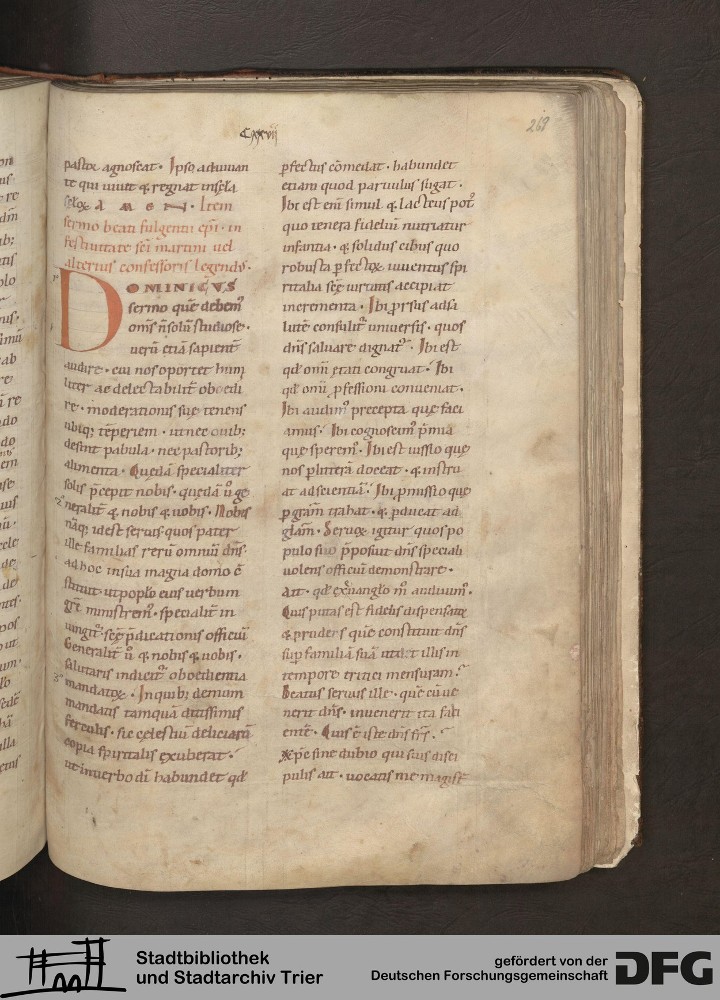 Cxxvii
269
pastor agnoscat · Ipso adiuuan
te qui uiuit & regnat in sęcła
sęłoꝝ A M E N · Item
sermo beati fulgentii epi · in
festiuitate sci martini uel
alterius confessoris legendus ·
DOMINICVS
sermo quē debem᷒
om̄s ñ solū studiose ·
uerū etiā sapient̄
audire · cui nos oportet humi
liter ac delectabilit̄ oboedi
re · moderationis suę tenens
ubiq; tēperiem · ut nec ouib;
desint pabula · nec pastorib;
alimenta · Quędā specialiter
solis p̄cepit nobis · quędā ū ge
neralit̄ & nobis & uobis · Nobis
nāq; id est seruis quos pater
ille familias rerū omniū dn̄s ·
ad hoc in sua magna domo
statuit ut popło eius uerbum
grę ministrem᷒ · specialit̄ in
iungit᷒ scę p̄dicationis officiū
Generalit̄ ū & nobis & uobis ·
salutaris indicit᷒ oboedientia
mandatoꝝ · In quib; demum
mandatis tamquā ditissimis
ferculis · sic celestiū deliciarū
copia spiritalis exuberat ·
ut in uerbo dī habundet qd̄
ꝑfectus cōmedat · habundet
etiam quod paruulus sugat ·
Ibi est enī simul & lacteus pot᷒
quo tenera fideliū nutriatur
infantia · & solidus cibus quo
robusta ꝑfectoꝝ iuuentus spi
ritalia scę uirtutis accipiat
incrementa · Ibi prorsus ad sa
lutē consulit᷒ uniuersis · quos
dn̄s saluare dignat᷒ · Ibi est
qd̄ omi ętati congruat · Ibi
qd̄ omi ꝓfessioni conueniat ·
Ibi audim᷒ precepta quę faci
amus · Ibi cognoscim᷒ p̄mia
quę sperem᷒ · Ibi est iussio quę
nos ꝑ litterā doceat · & instru
at ad scientiā · Ibi ꝓmissio que
ꝑ grām trahat · & ꝑducat ad
głam · Seruoꝝ igitur quos po
pulo suo p̄posuit dn̄s speciali
uolens officiū demonstrare ·
Ait · qd̄ ex euanglo m̊ audiuim᷒ ·
Quis putas est fidelis dispensator
& prudens quē constituit dn̄s
suꝑ familiā suā ut det illis in
tempore tritici mensuram ·
Beatus seruus ille · quē cū ue
nerit dn̄s · inuenerit ita faci
entē · Quis ē iste dn̄s frs̄ ·
Xp̄c sine dubio qui suis disci
pulis ait · uocatis me magist̄
Stadtbibliothek
und Stadtarchiv Trier
gefördert von der
Deutschen Forschungsgemeinschaft
DFG